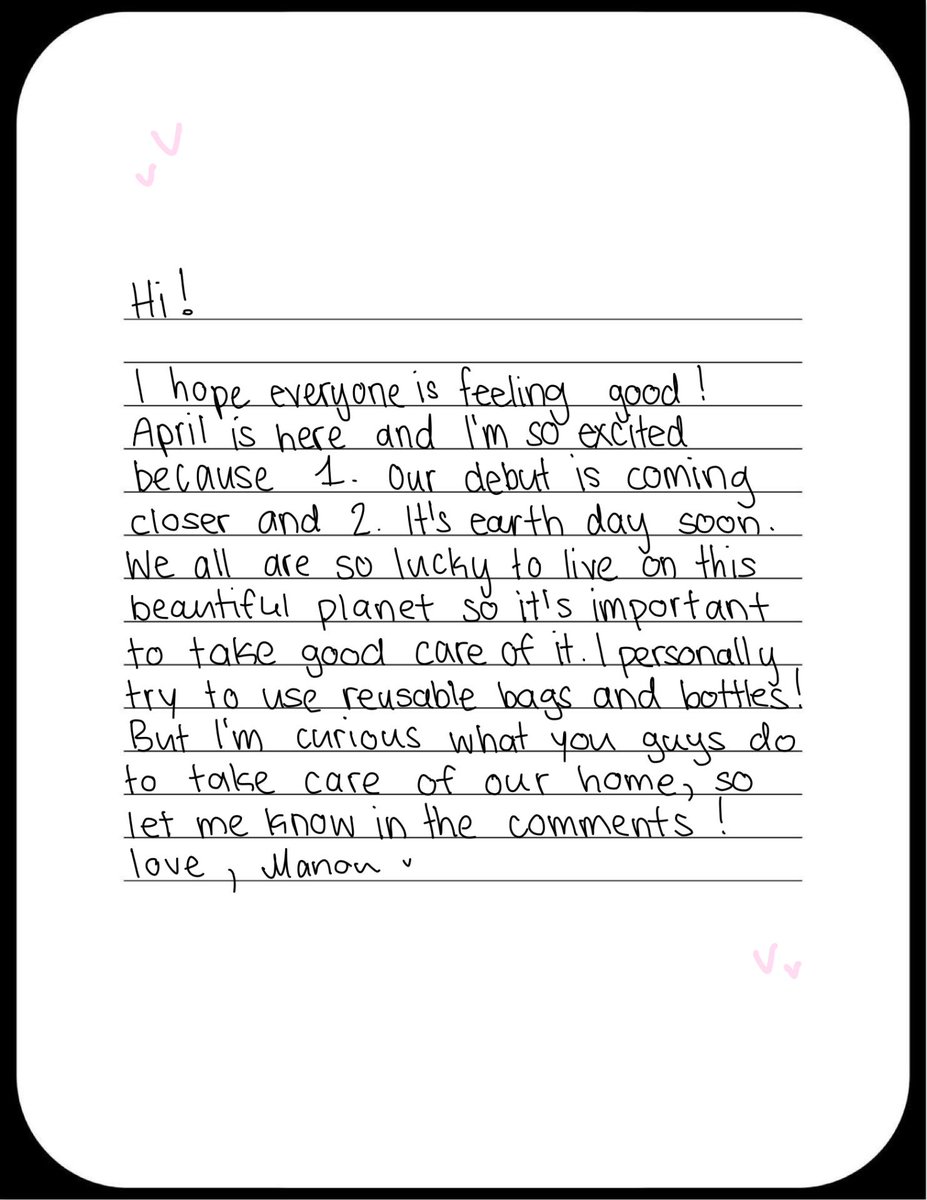 Hi!
I hope everyone is feeling good!
April is here and I'm so excited
because 1. Our debut is coming
closer and 2. It's earth day soon.
We all are so lucky to live on this
beautiful planet so it's important
to take good care of it. I personally
try to use reusable bags and bottles!
But I'm curious what you guys do
to take care of our home, so
let me know in the comments!
love, Manon ˇ